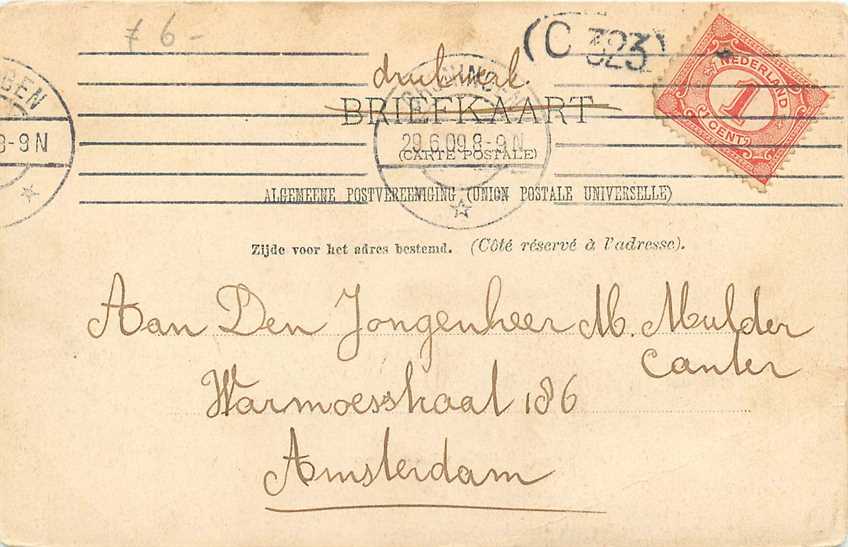 ƒ 6 -
(C 323)
NEDERLAND
1
1 CENT
GEN
8-9 N
drukwerk
GRONINGEN
BRIEFKAART
29.6.09 8-9 N
(CARTE POSTALE)
ALGEMEENE POSTVEREENIGING (UNION POSTALE UNIVERSELLE)
Zijde voor het adres bestemd. (Côté réservé à l'adresse).
Aan Den Jongenheer M. Mulder
Canter
Warmoesstraat 186
Amsterdam